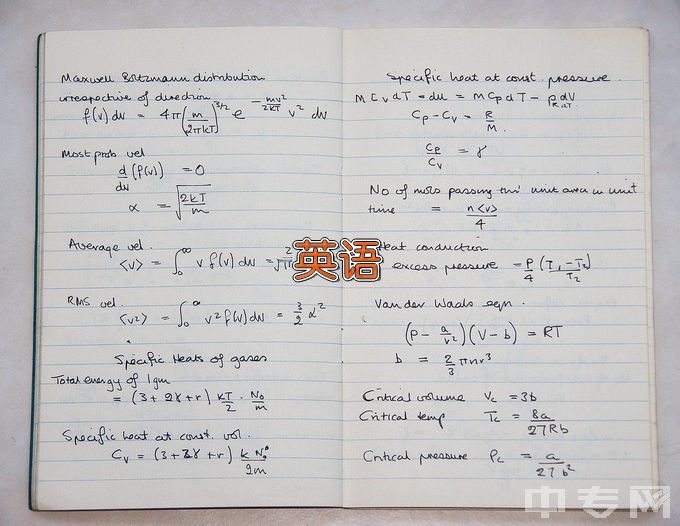 Maxwell Boltzmann distribution
irrespective of direction
f(v) dv = 4π(m/2πkT)^3/2 e^-mv²/2kT v² dv
Most prob vel
d/dv (f(v)) = 0
α = √2kT/m
Average vel.
<v> = ∫₀^∞ v f(v) dv = 2/√π
RMS vel.
<v²> = ∫₀^∞ v² f(v) dv = 3/2 α²
Specific Heats of gases
Total energy of 1gm
= (3 + 2γ + r) kT/2 · N₀/m
Specific heat at const. vol.
Cv = (3 + 2γ + r) k N₀/2m
英语
Specific heat at const. pressure.
M Cv dT = du = M Cp dT - p dV
R dT
Cp - Cv = R/M.
Cp/Cv = γ
No of mols passing thro' unit area in unit
time = n<v>/4
Heat conduction
excess pressure = P/4 (T₁ - T₂)/T₂
Van der Waals eqn.
(P - a/v²)(V - b) = RT
b = 2/3 π n r³
Critical volume Vc = 3b
Critical temp Tc = 8a/27Rb
Critical pressure Pc = a/27b²
中专网